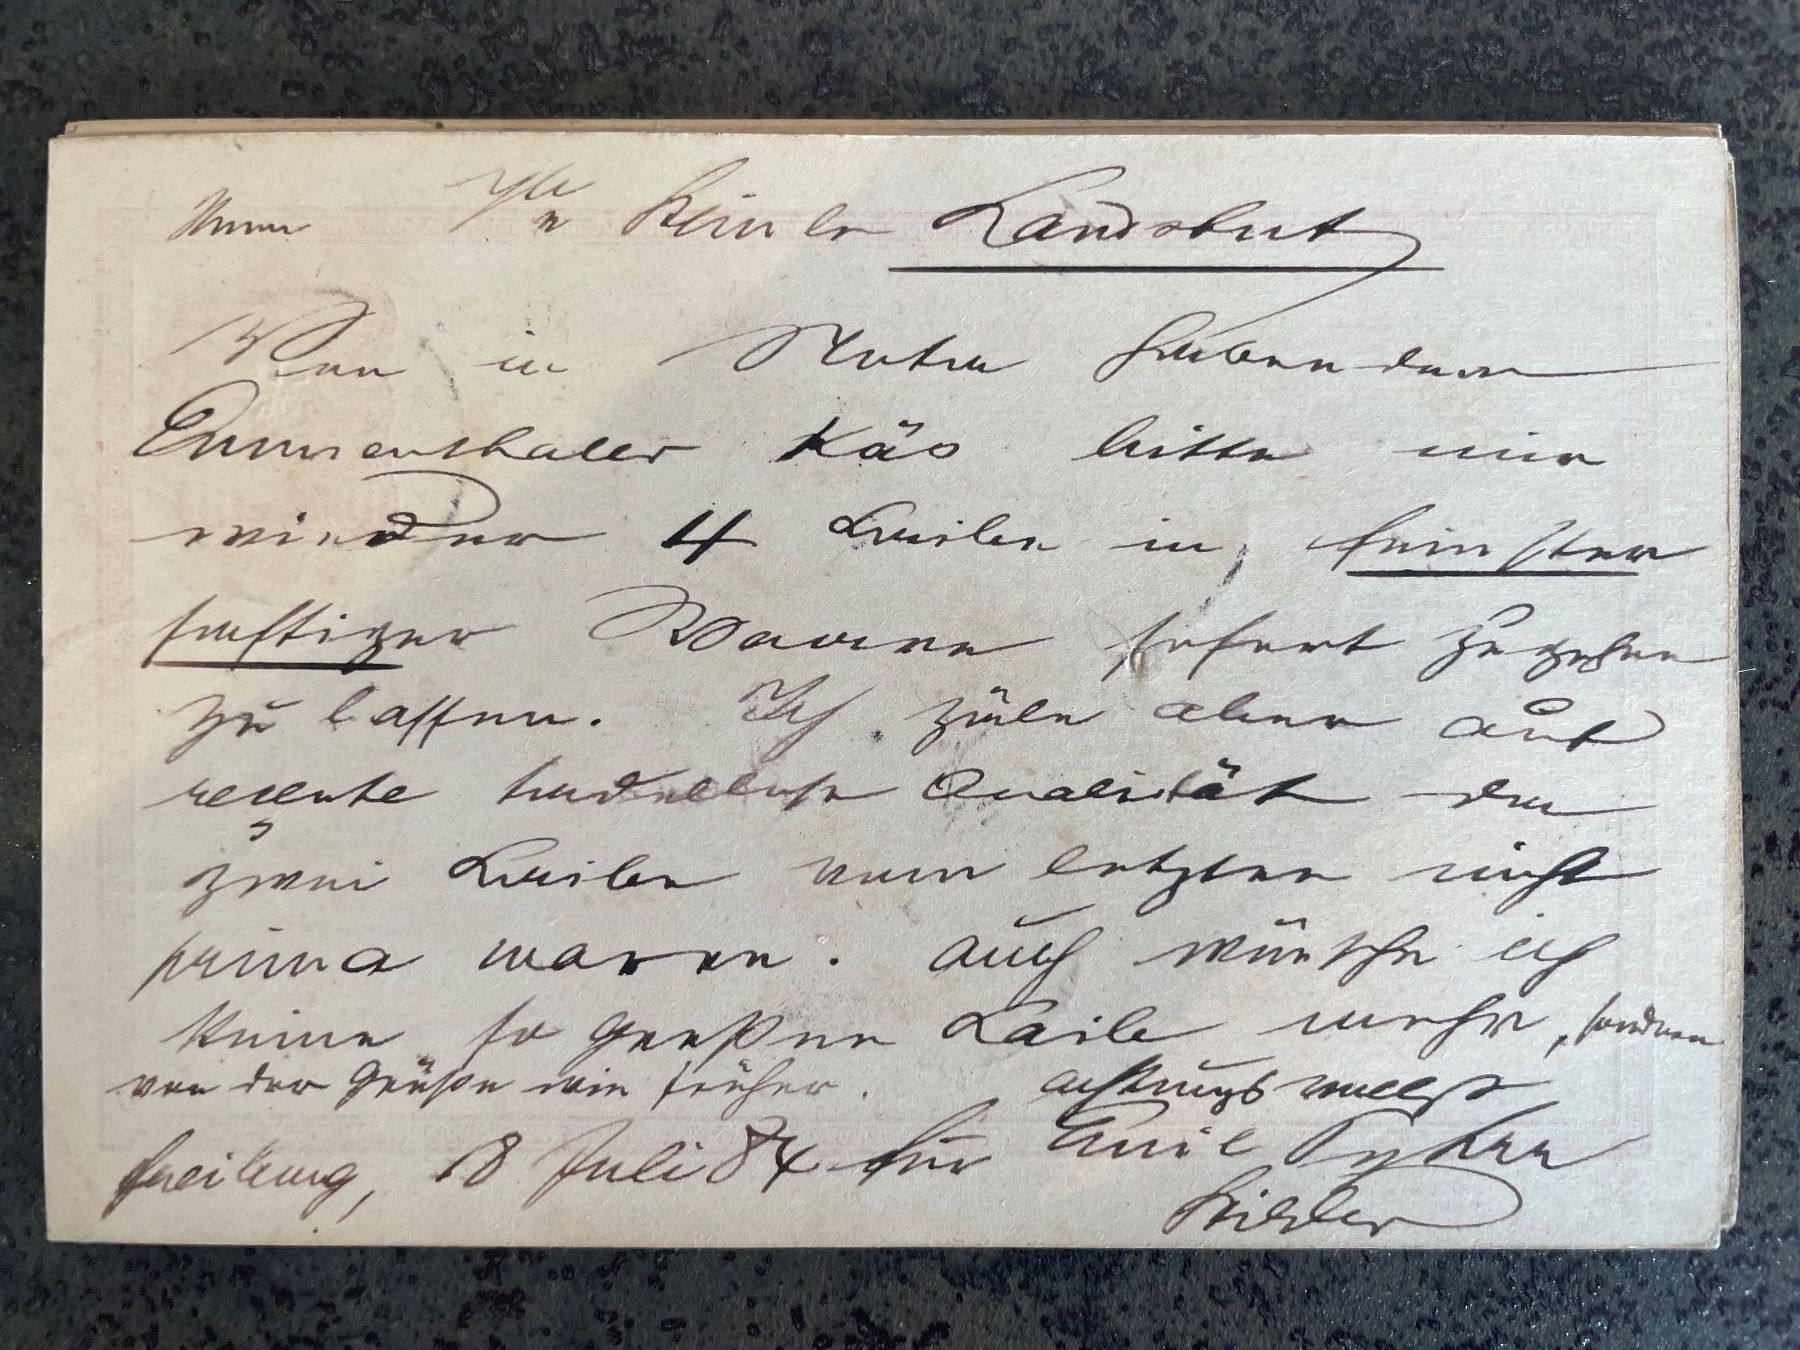 Herrn Landshut
Von in Natur habendem
Emmenthaler Käs bitte mir
wieder 4 Laibe in feinster
saftiger Waare sofort zugehen
zu lassen. Ich zäle aber auf
recente tadellose Qualität da
zwei Laibe vom letzten nicht
prima waren. Auch wünsche ich
keine so großen Laibe mehr, sondern
von der Größe wie früher. Achtungsvollst
Freiburg, 18 Juli 84 für Emil